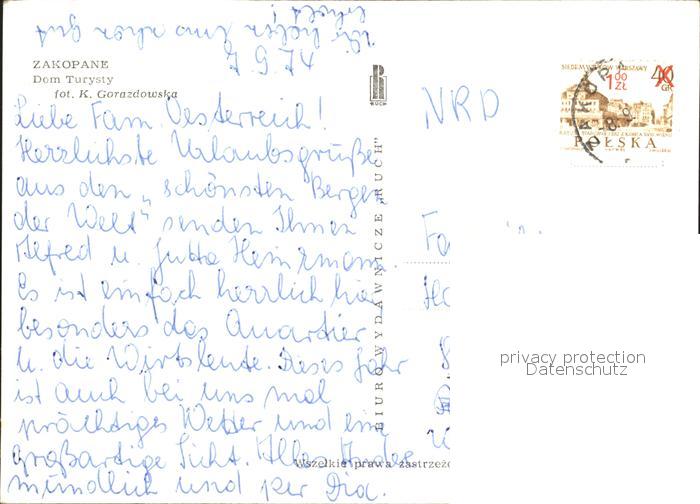 7.9.74
ZAKOPANE
Dom Turysty
fot. K. Gorazdowska
RUCH
NRD
SIEDEM WIEKÓW WARSZAWY
1 00 ZŁ
40 GR
POLSKA
Liebe Fam. Oesterreich!
Herrlichste Urlaubsgrüße
aus den „schönsten Bergen
der Welt" senden Ihnen
Alfred u. Jutta Heinzmann.
Es ist einfach herrlich hier
besonders das Quartier
u. die Wirtsleute. Dieses Jahr
ist auch bei uns mal
prächtiges Wetter und eine
großartige Sicht. Alles Andere
mündlich und per Dia.
BIURO WYDAWNICZE „RUCH"
Fa
privacy protection
Datenschutz
Wszelkie prawa zastrzeżo